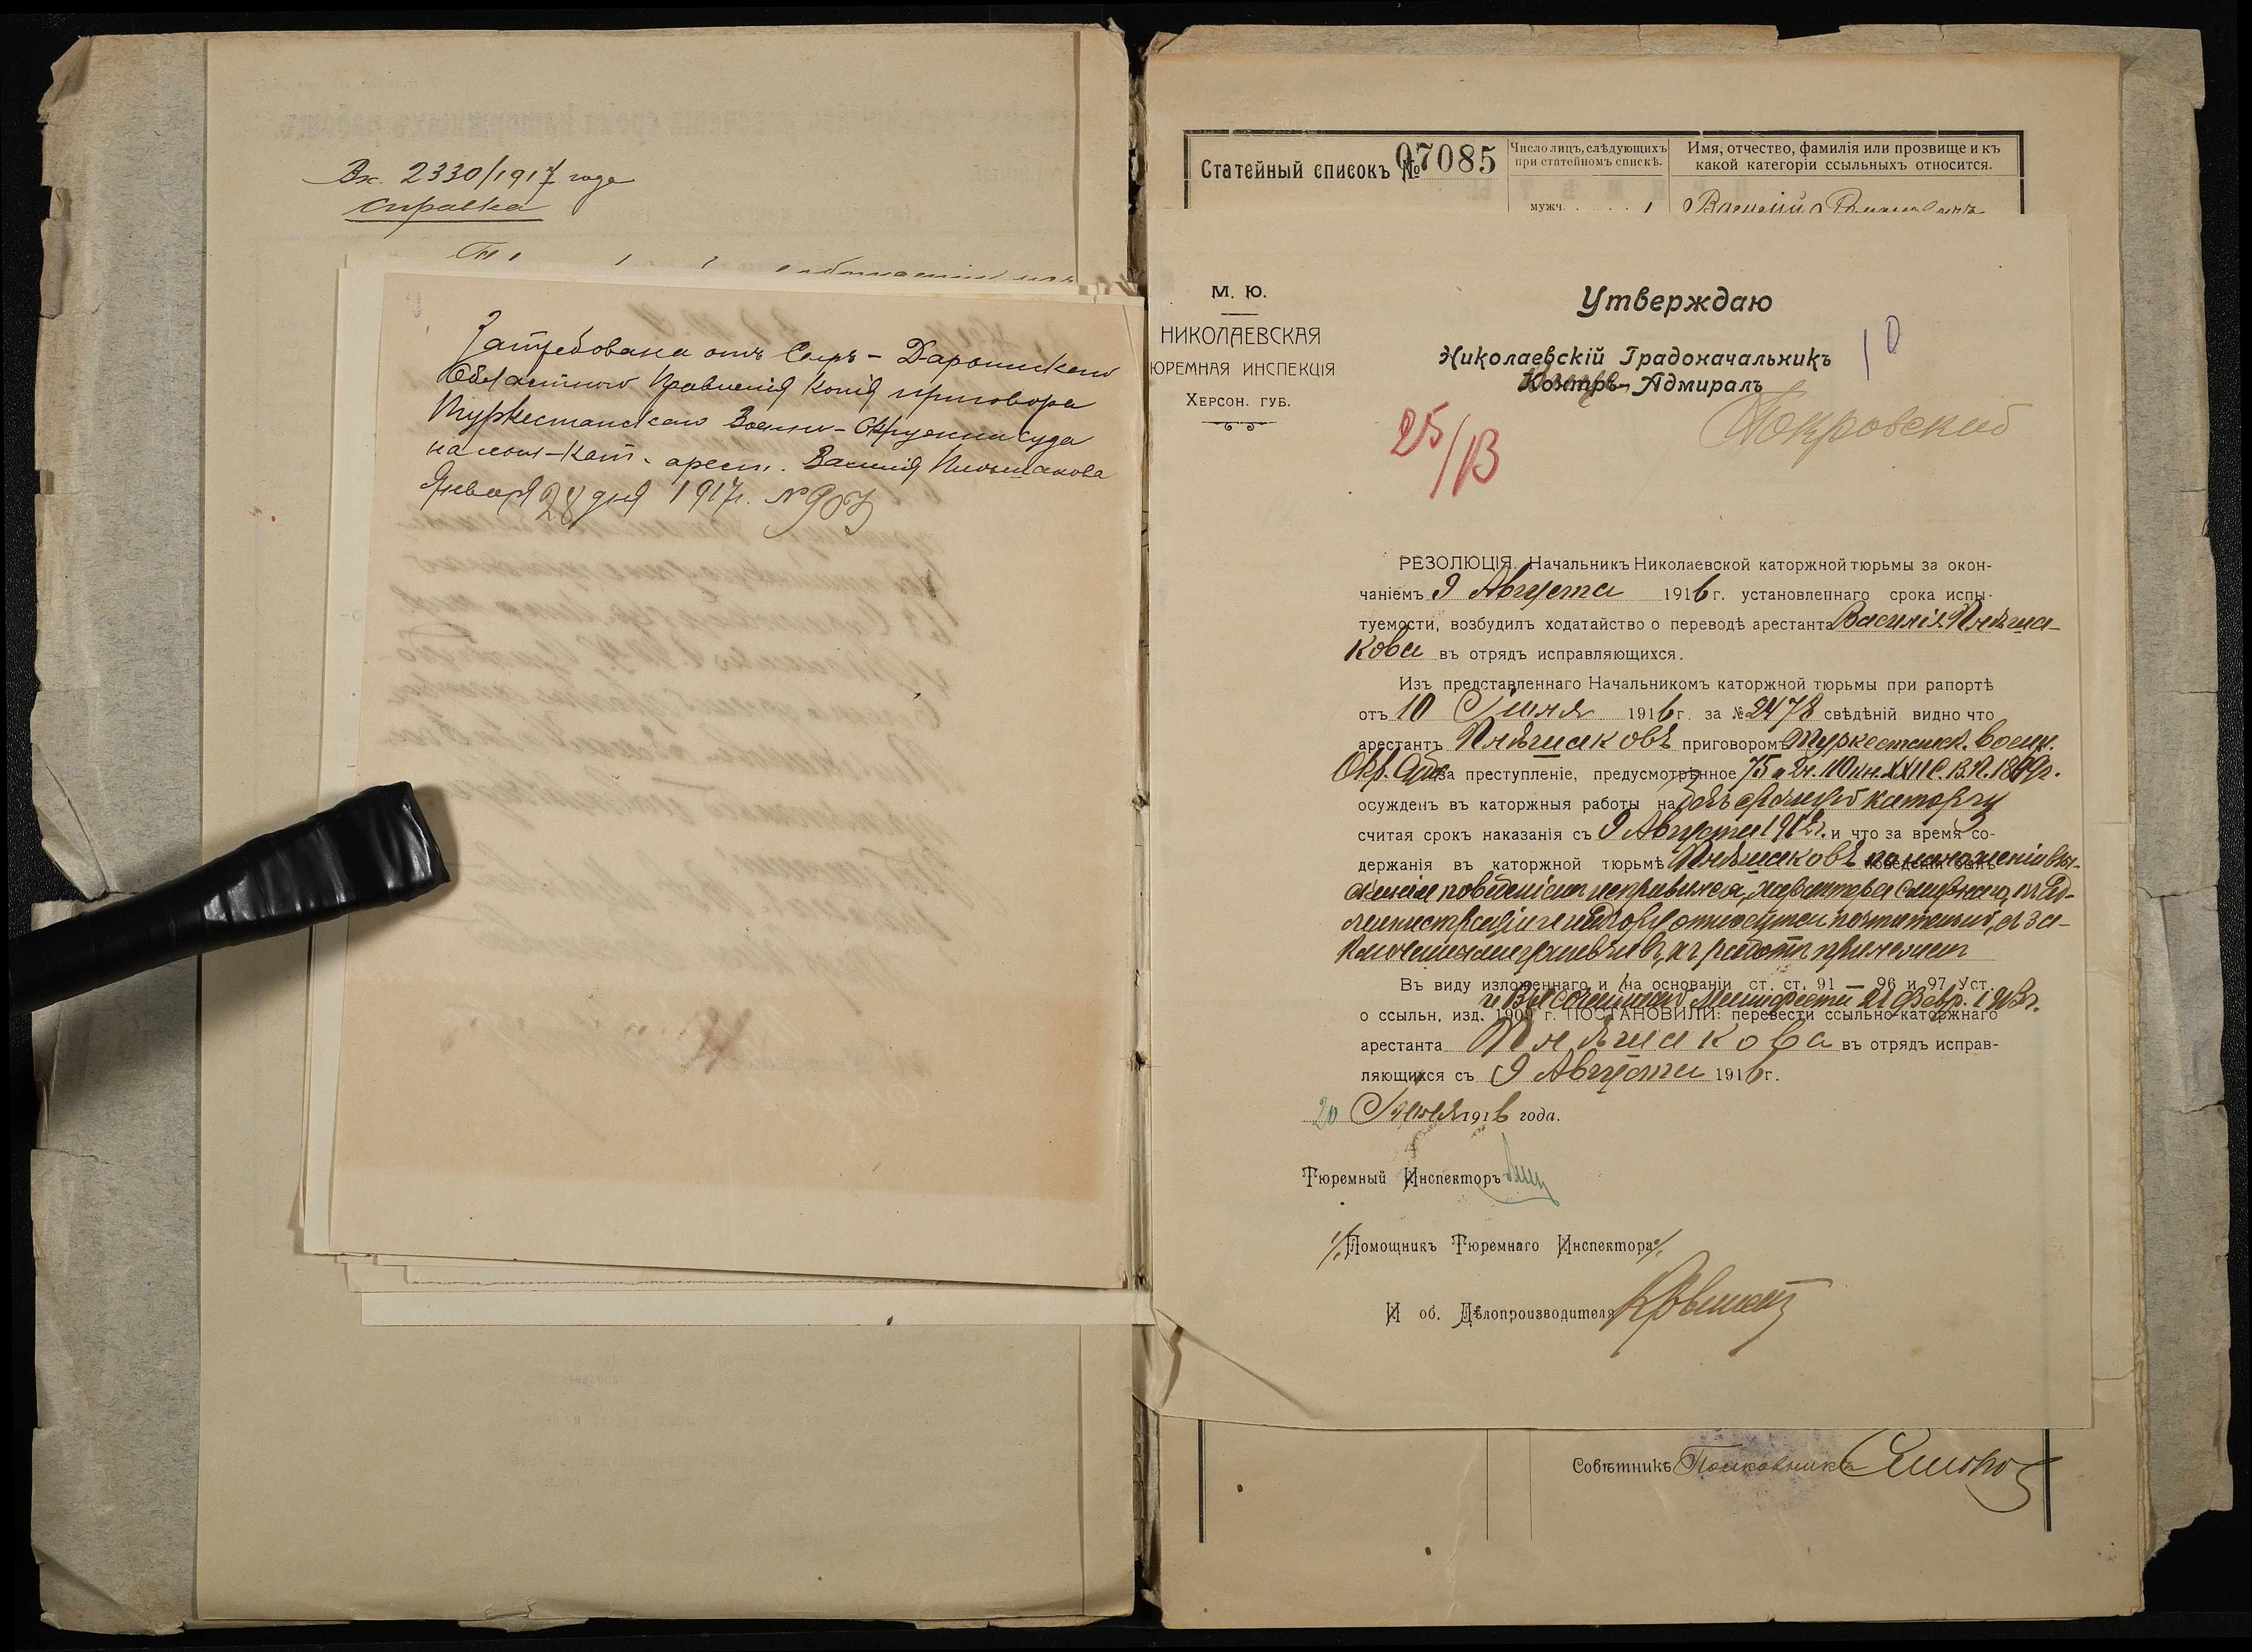 Вх. 2330/1917 года
справка
Затребована отъ Сыръ-Дарьинскаго
Областного Правленія копія приговора
Туркестанскаго Военно-Окружнаго суда
на ссыл-кат. арест. Василія Плѣшакова
Января 28 дня 1917г. №903
Статейный списокъ № 07085
Число лицъ, слѣдующихъ
при статейномъ спискѣ.
мужч. . . . . 1
Имя, отчество, фамилія или прозвище и къ
какой категоріи ссыльныхъ относится.
Василій
М. Ю.
НИКОЛАЕВСКАЯ
ЮРЕМНАЯ ИНСПЕКЦІЯ
Херсон. губ.
Утверждаю
10
Николаевскій Градоначальникъ
Контръ-Адмиралъ
Покровский
25/
РЕЗОЛЮЦІЯ. Начальникъ Николаевской каторжной тюрьмы за окон-
чаніемъ 9 Августа 1916 г. установленнаго срока испы-
туемости, возбудилъ ходатайство о переводѣ арестанта Василія Плѣша-
кова въ отрядъ исправляющихся.
Изъ представленнаго Начальникомъ каторжной тюрьмы при рапортѣ
отъ 10 Іюня 1916 г. за № 2478 свѣдѣній видно что
арестантъ Плѣшаковъ приговоромъ Туркестанск. Воен.
Окр. Суда за преступленіе, предусмотрѣнное 75 и 2ч. 110 кн. XXII С.В.П. 1869г.
осужденъ въ каторжныя работы на
считая срокъ наказанія съ 9 Августа 1912г. и что за время со-
держанія въ каторжной тюрьмѣ Плѣшаковъ по наложеніи взы-
сканія поведеніемъ исправился, характера смирнаго, къ Ад-
министраціи и надзору относится почтительно, съ за-
ключенными уживчивъ, къ работѣ прилеженъ
Въ виду изложеннаго и на основаніи ст. ст. 91 — 96 и 97 Уст.
и Высочайшаго Манифеста 21 Февр. 1913г.
о ссыльн. изд. 1909 г. ПОСТАНОВИЛИ: перевести ссыльно-каторжнаго
арестанта Плѣшакова въ отрядъ исправ-
ляющихся съ 9 Августа 1916 г.
20 1916 года.
Тюремный Инспекторъ
Помощникъ Тюремнаго Инспектора
И об. Дѣлопроизводителя
Совѣтникъ Полковникъ